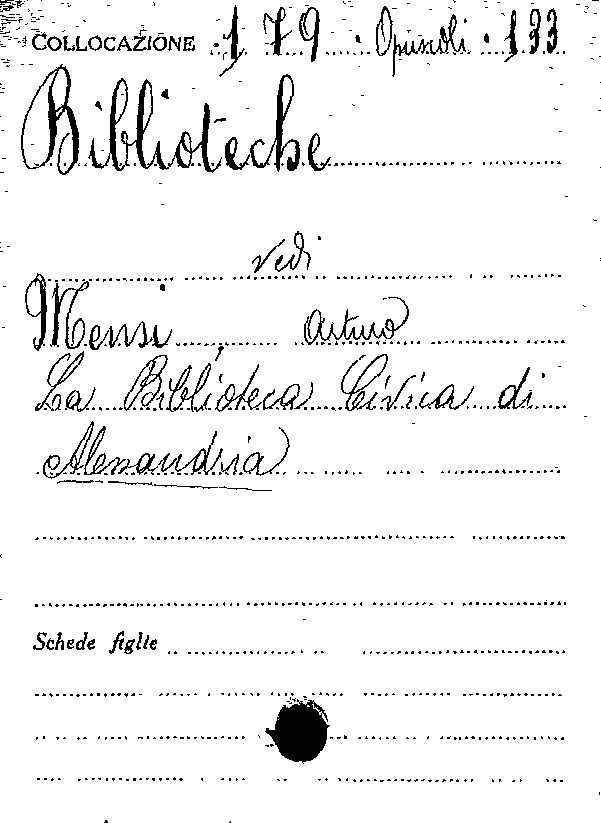 COLLOCAZIONE 179 · Opuscoli · 133
Biblioteche
vedi
Mensi, Arturo
La Biblioteca Civica di
Alessandria
Schede figlie